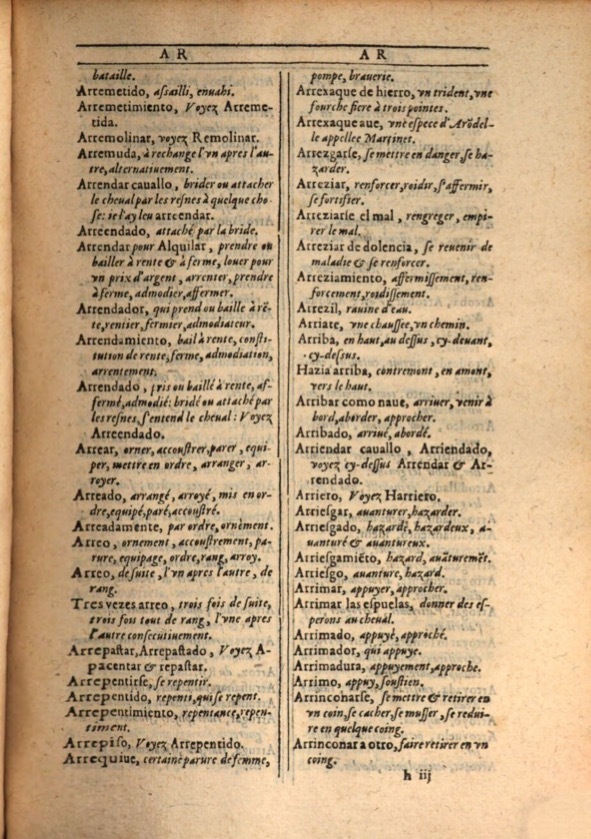 AR
bataille.
Arremetido, assailli, enuahi.
Arremetimiento, Voyez Arreme-
tida.
Arremolinar, voyez Remolinar.
Arremuda, à rechange l'vn apres l'au-
tre, alternatiuement.
Arrendar cauallo, brider ou attacher
le cheual par les resnes à quelque cho-
se: ie l'ay leu arreendar.
Arreendado, attaché par la bride.
Arrendar pour Alquilar, prendre ou
bailler à rente & à ferme, louer pour
vn prix d'argent, arrenter, prendre
à ferme, admodier, affermer.
Arrendador, qui prend ou baille à rē-
te, rentier, fermier, admodiateur.
Arrendamiento, bail à rente, consti-
tution de rente, ferme, admodiation,
arrentement.
Arrendado, pris ou baillé à rente, af-
fermé, admodié: bridé ou attaché par
les resnes, s'entend le cheual: Voyez
Arreendado.
Arrear, orner, accoustrer, parer, equi-
per, mettre en ordre, arranger, ar-
royer.
Arreado, arrangé, arroyé, mis en or-
dre, equipé, paré, accoustré.
Arreadamente, par ordre, ornément.
Arreo, ornement, accoustrement, pa-
rure, equipage, ordre, rang, arroy.
Arreo, de suite, l'vn apres l'autre, de
rang.
Tres vezes arreo, trois fois de suite,
trois fois tout de rang, l'vne apres
l'autre consecutiuement.
Arrepastar, Arrepastado, Voyez A-
pacentar & repastar.
Arrepentirse, se repentir.
Arrepentido, repenti, qui se repent.
Arrepentimiento, repentance, repen-
timent.
Arrepiso, Voyez Arrepentido.
Arrequiue, certaine parure de femme,
AR
pompe, brauerie.
Arrexaque de hierro, vn trident, vne
fourche fiere à trois pointes.
Arrexaque aue, vne espece d'Arōdel-
le appellee Martinet.
Arrezgarse, se mettre en danger, se ha-
zarder.
Arreziar, renforcer, roidir, s'affermir,
se fortifier.
Arreziarse el mal, rengreger, empi-
rer le mal.
Arreziar de dolencia, se reuenir de
maladie & se renforcer.
Arreziamiento, affermissement, ren-
forcement, roidissement.
Arrezil, rauine d'eau.
Arriate, vne chaussee, vn chemin.
Arriba, en haut, au dessus, cy-deuant,
cy-dessus.
Hazia arriba, contremont, en amont,
vers le haut.
Arribar como naue, arriuer, venir à
bord, aborder, approcher.
Arribado, arriué, abordé.
Arriendar cauallo, Arriendado,
voyez cy-dessus Arrendar & Ar-
rendado.
Arriero, Voyez Harriero.
Arriesgar, auanturer, hazarder.
Arriesgado, hazardé, hazardeux, a-
uanturé & auantureux.
Arriesgamiēto, hazard, auāturemēt.
Arriesgo, auanture, hazard.
Arrimar, appuyer, approcher.
Arrimar las espuelas, donner des es-
perons au cheual.
Arrimado, appuyé, approché.
Arrimador, qui appuye.
Arrimadura, appuyement, approche.
Arrimo, appuy, soustien.
Arrinconarse, se mettre & retirer en
vn coin, se cacher, se musser, se redui-
re en quelque coing.
Arrinconar a otro, faire retirer en vn
coing.
h iij